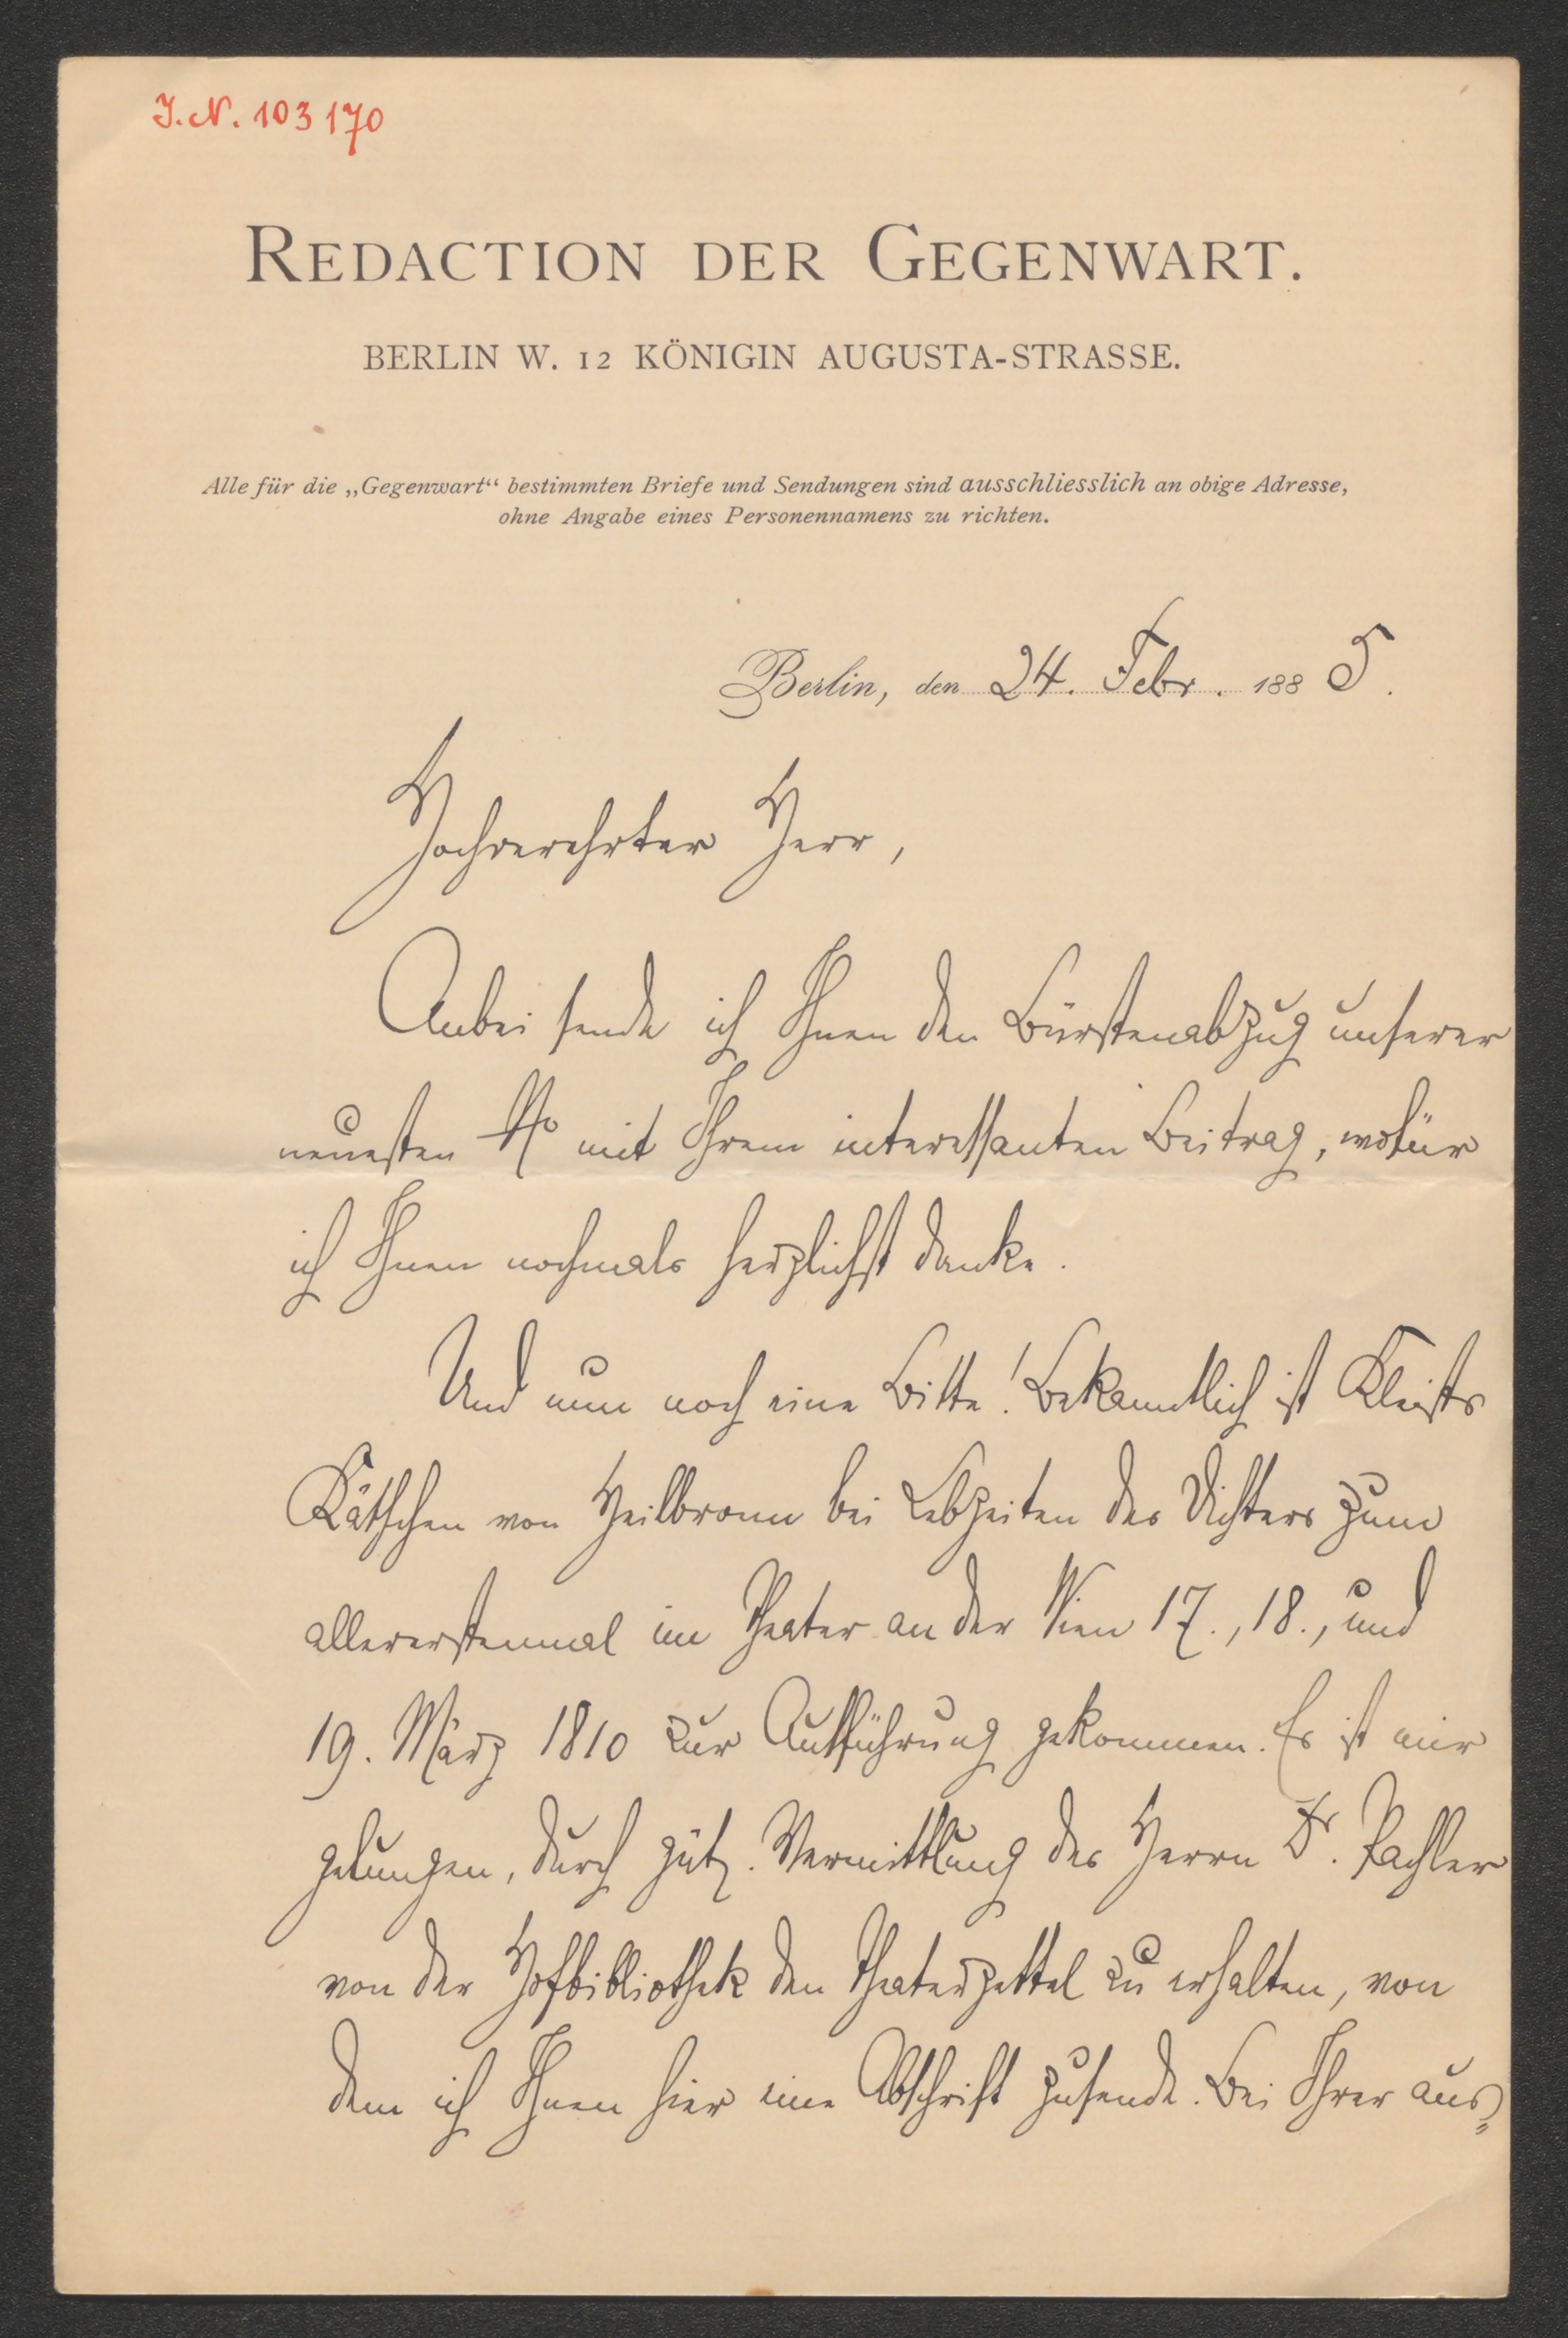 J.N. 103170
REDACTION DER GEGENWART.
BERLIN W. 12 KÖNIGIN AUGUSTA-STRASSE.
Alle für die „Gegenwart“ bestimmten Briefe und Sendungen sind ausschliesslich an obige Adresse,
ohne Angabe eines Personennamens zu richten.
Berlin, den 24. Febr. 1885.
Hochverehrter Herr,
Anbei sende ich Ihnen den Bürstenabzug unserer
neuesten No mit Ihrem interessanten Beitrag, wofür
ich Ihnen nochmals herzlichst danke.
Und nun noch eine Bitte! Bekanntlich ist Kleists
Käthchen von Heilbronn bei Lebzeiten des Dichters zum
allererstenmal im Theater an der Wien 17., 18., und
19. März 1810 zur Aufführung gekommen. Es ist mir
gelungen, durch güt. Vermittlung des Herrn Dr. Pachler
von der Hofbibliothek den Theaterzettel zu erhalten, von
dem ich Ihnen hier eine Abschrift zusende. Bei Ihrer aus=